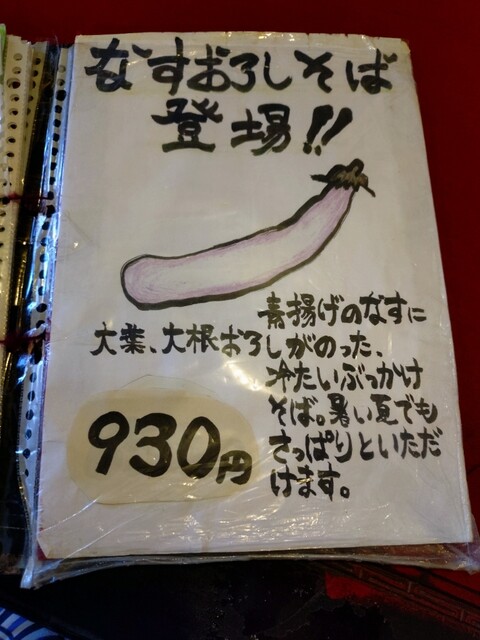 なすおろしそば
登場!!
素揚げのなすに
大葉、大根おろしがのった、
冷たいぶっかけ
そば。暑い夏でも
さっぱりといただ
けます。
930円